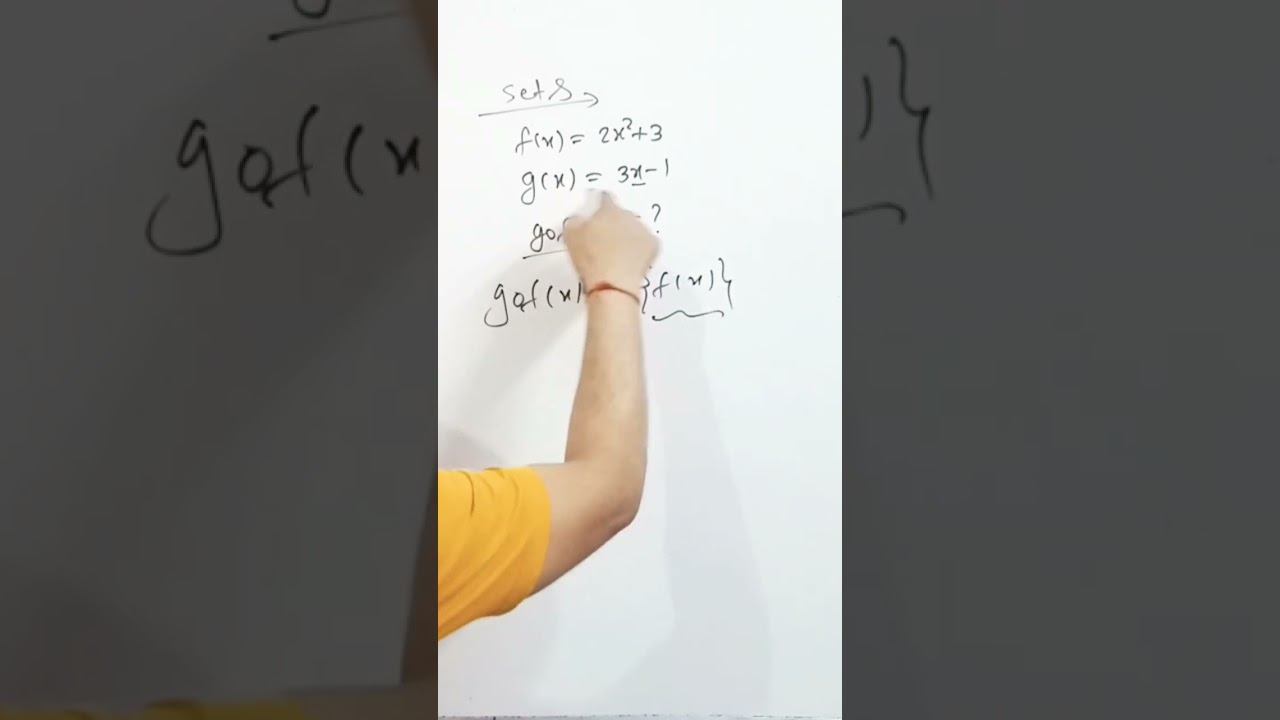 Sets
f(x) = 2x²+3
g(x) = 3x-1
gof ?
gof(x) {f(x)}